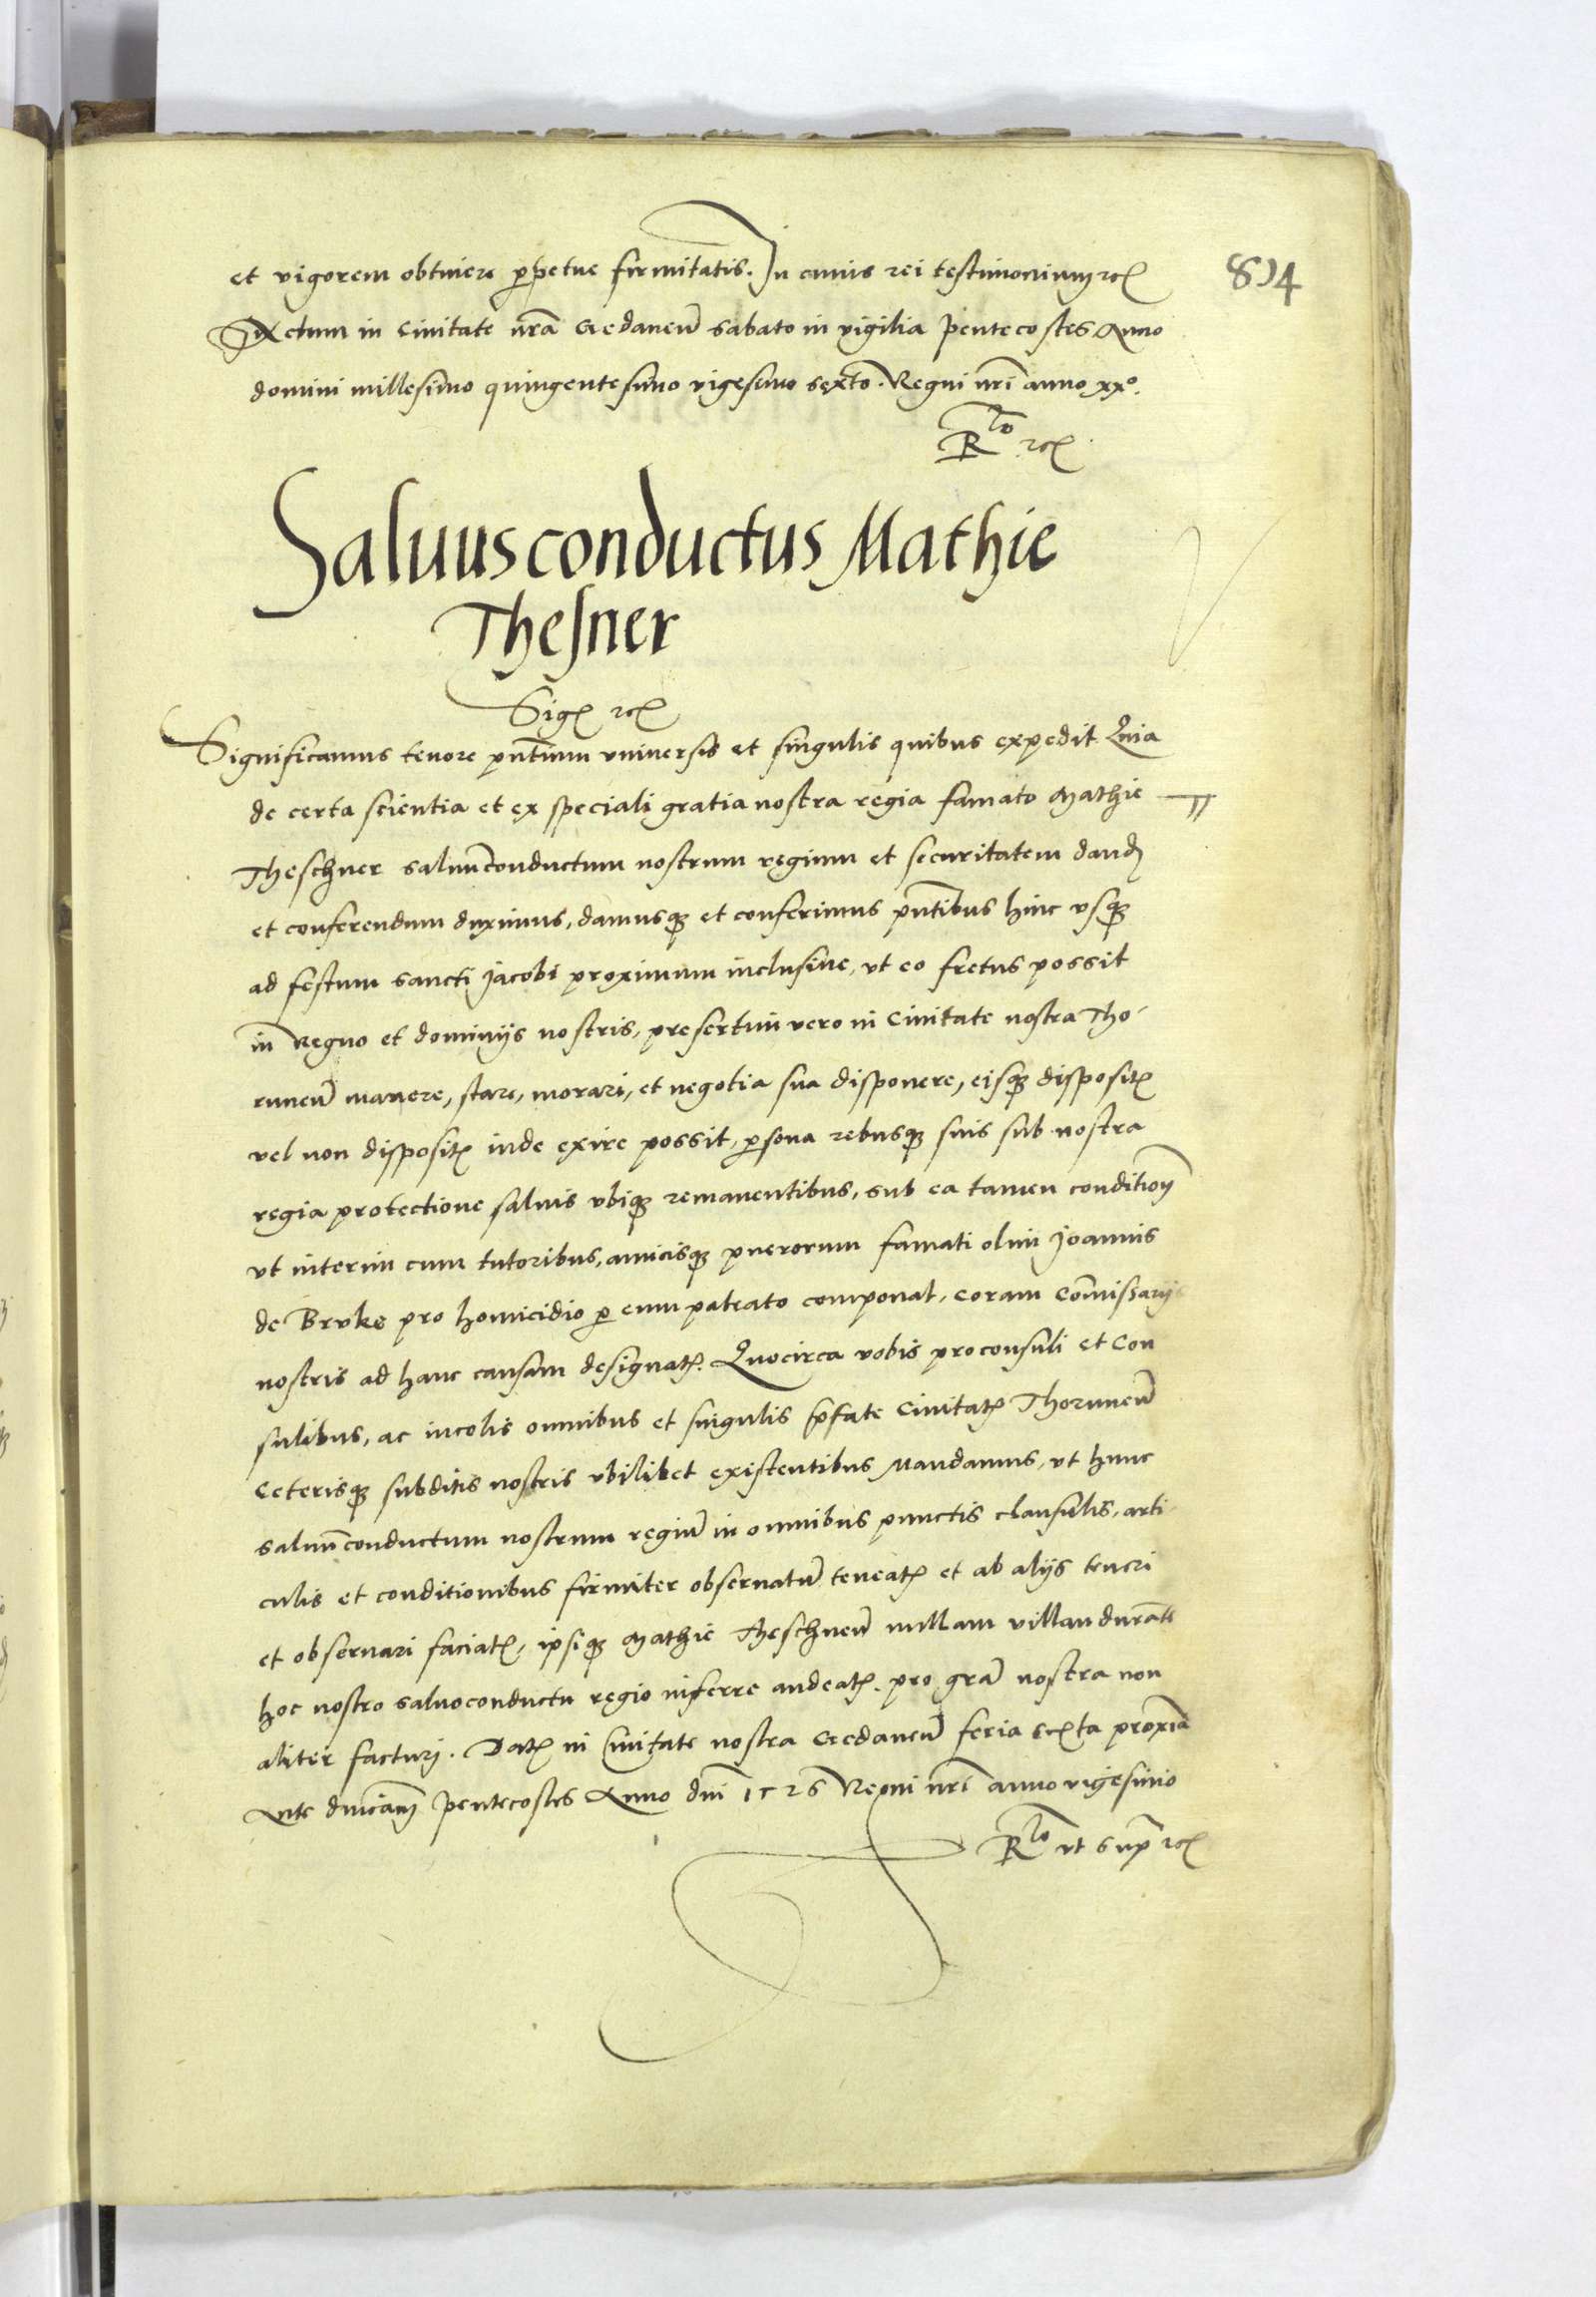 et vigorem obtinere p̱petue firmitatis. In cuius rei testimonium ꝛcꝭ
814
Actum in Ciuitate nr̃a Gedaneñ sabato in vigilia Pentecostes Anno
domini millesimo quingentesimo vigesimo sexto. Regni nr̃i anno xxº.
R͠to ꝛcꝭ
Saluusconductus Mathie
Thesner
Sigꝭ ꝛcꝭ
Significamus tenore pñtium vniuersis et singulis quibus expedit Quia
de certa scientia et ex speciali gratia nostra regia famato Mathie
Theschner saluũconductum nostrum regium et securitatem dandꝭ
et conferendum duximus, damusqꝫ et conferimus pñtibus hinc vsqꝫ
ad festum sancti Jacobi proximum inclusiue, vt eo fretus possit
in Regno et dominijs nostris, presertim vero in Ciuitate nostra Tho-
runeñ manere, stare, morari, et negotia sua disponere, eisqꝫ dispositꝭ
vel non dispositꝭ inde exire possit, p̱sona rebusqꝫ suis sub nostra
regia protectione saluis vbiqꝫ remanentibus, sub ea tamen conditioñ
vt interim cum tutoribus, amicisqꝫ puerorum famati olim Joannis
de Bruke pro homicidio p̱ eum patrato componat, coram Com̃issarijs
nostris ad hanc causam designatꝭ. Quocirca vobis proconsuli et Con
sulibus, ac incolis omnibus et singulis p̃fate Ciuitatꝭ Thoruneñ
Ceterisqꝫ subditis nostris vbilibet existentibus Mandamus, vt hunc
saluũconductum nostrum regiũ in omnibus punctis clausulis, arti-
culis et conditionibus firmiter obseruatũ teneatꝭ et ab alijs teneri
et obseruari faciatꝭ, ipsiqꝫ Mathie Theschneñ nullam villam durañte
hoc nostro saluoconductu regio inferre audeatꝭ. pro grã nostra non
aliter facturj. Datꝭ in Ciuitate nostra Gedaneñ feria sexta proxĩa
Ante dnicam̃ Pentecostes Anno dñi 1526 Regni nr̃i anno vigesimo
R͠to vt sup̃ ꝛcꝭ